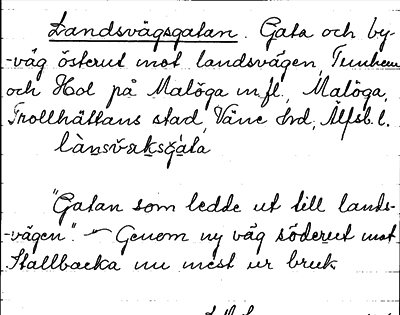 Landsvägsgatan. Gata och by-
-väg österut mot landsvägen, Tunhem
och Hol på Malöga m.fl., Malöga,
Trollhättans stad, Väne hd, Älfsb. l.
lànsv̄aksgàta
"Gatan som ledde ut till lands-
-vägen". – Genom ny väg söderut mot
Stallbacka nu mest ur bruk